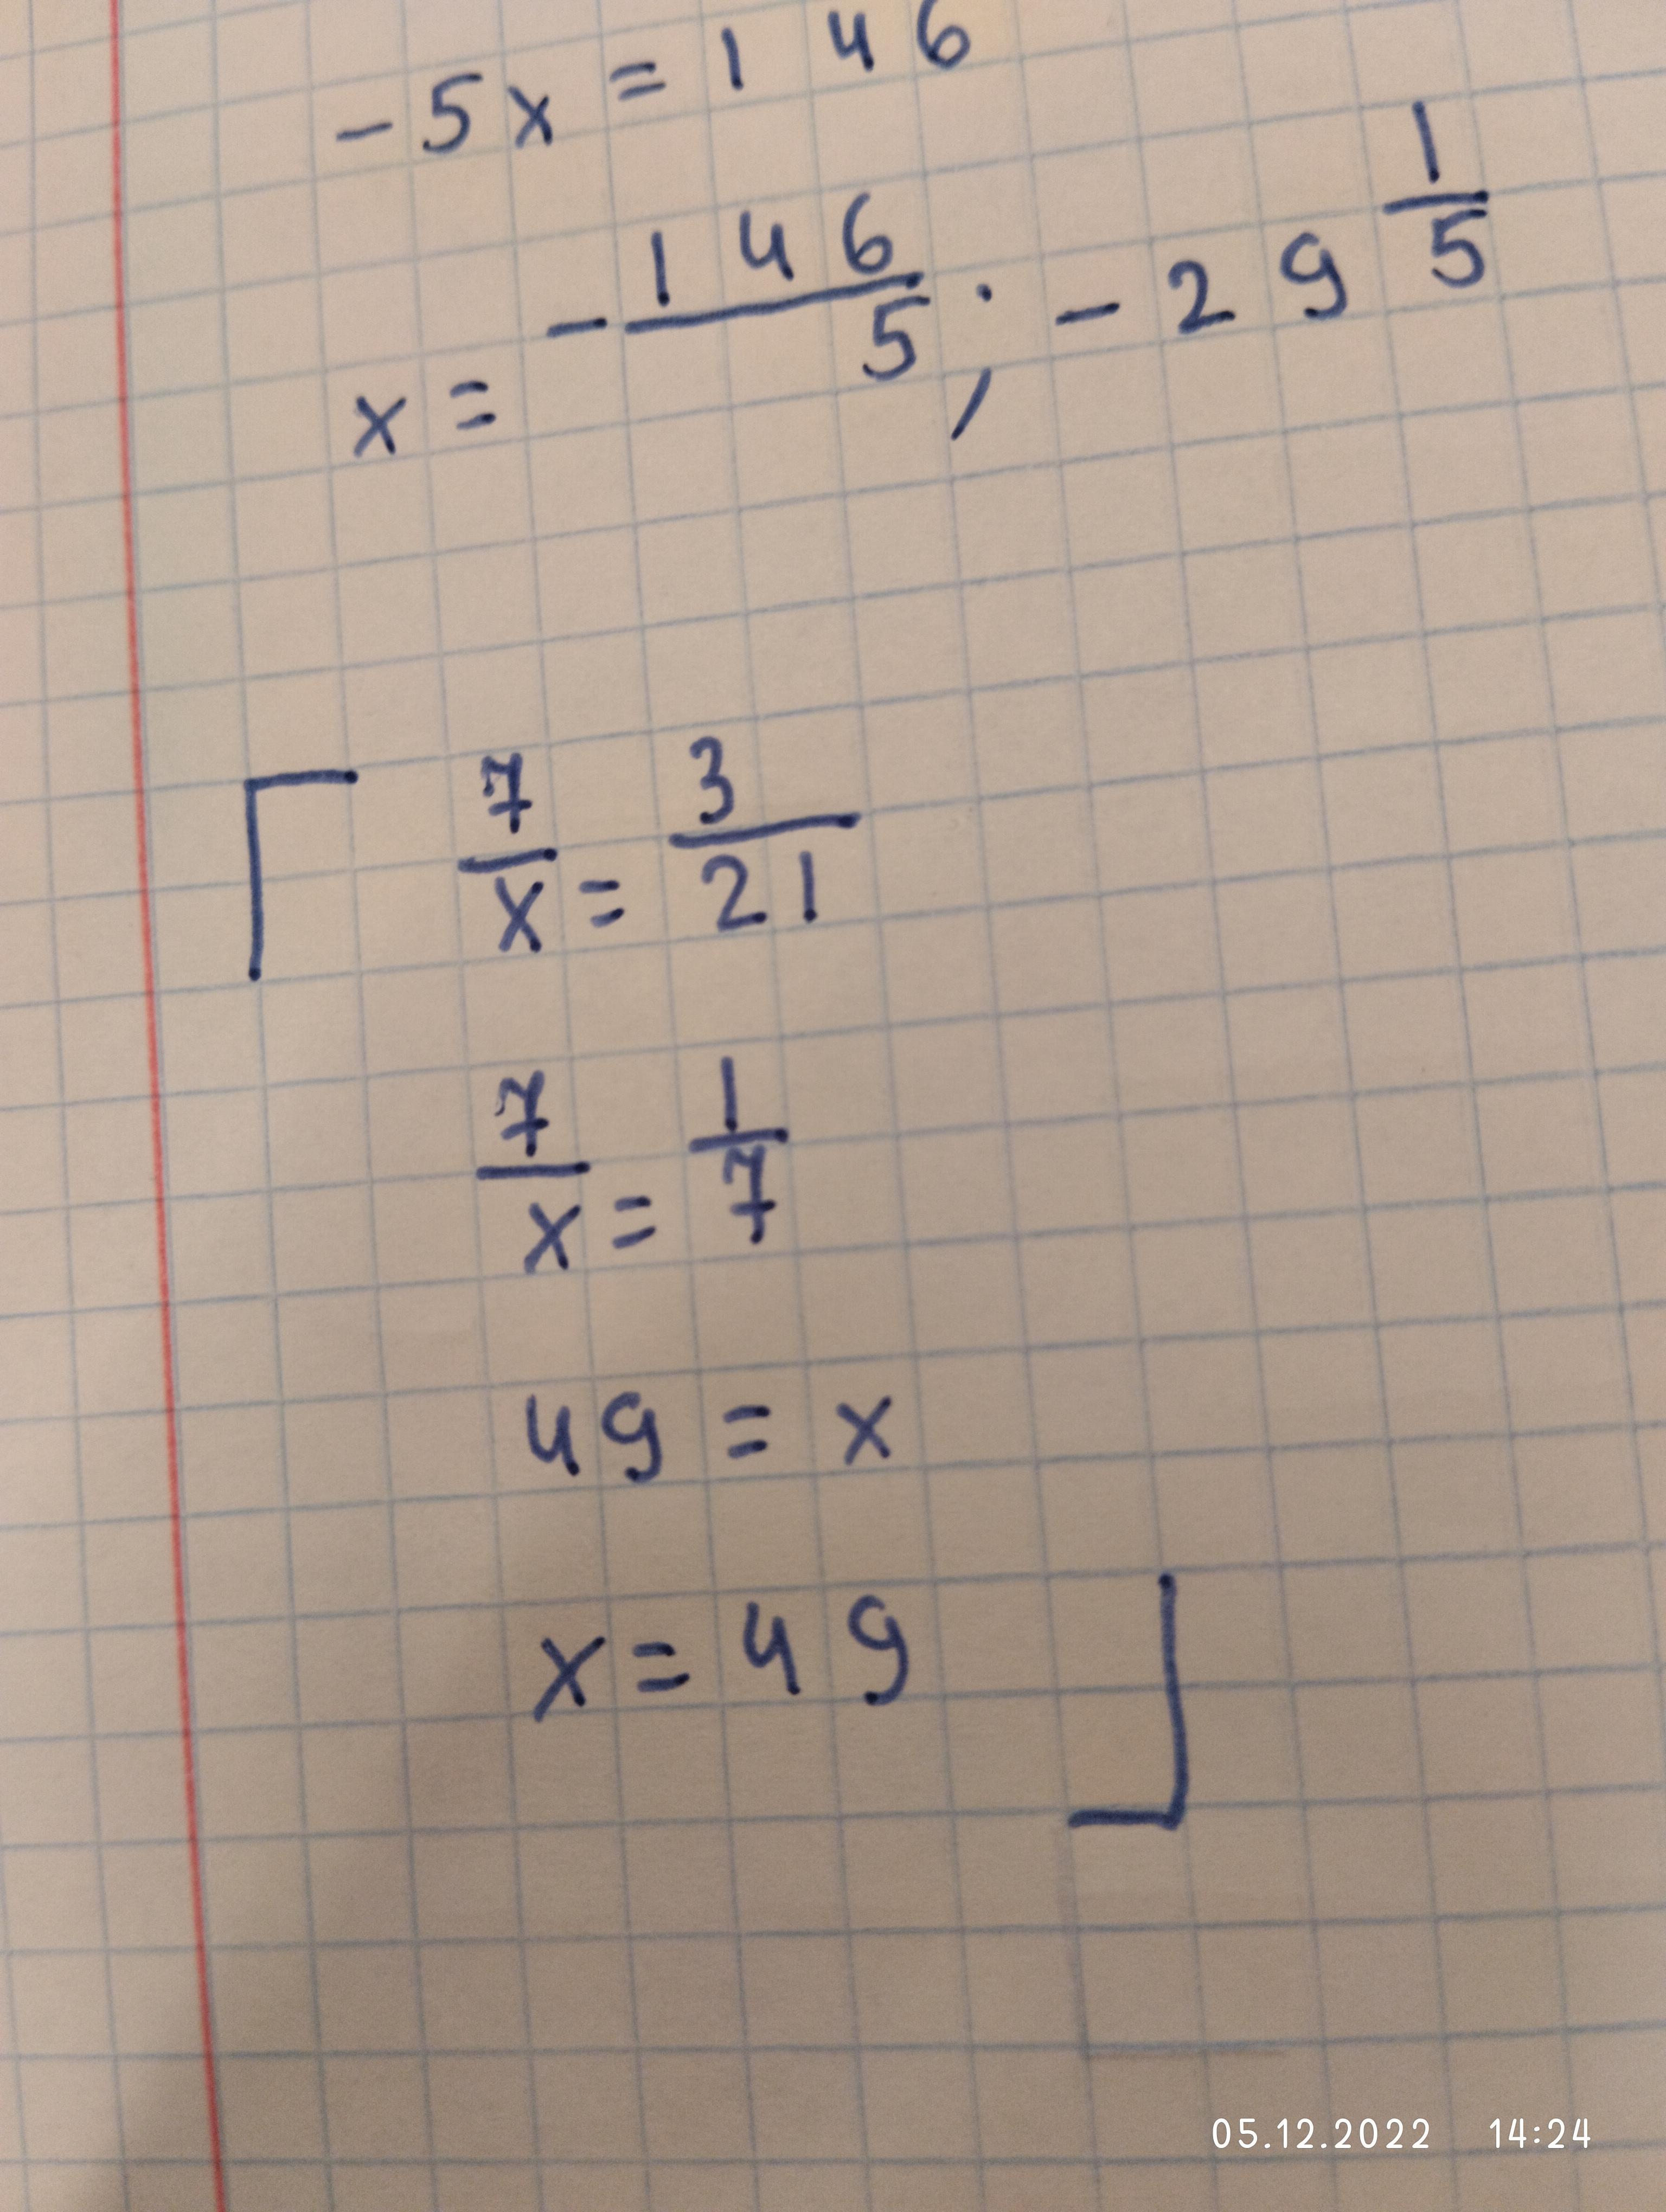 -5x = 146
x = -146/5 ; -29 1/5
7/x = 3/21
7/x = 1/7
49 = x
x = 49
05.12.2022 14:24